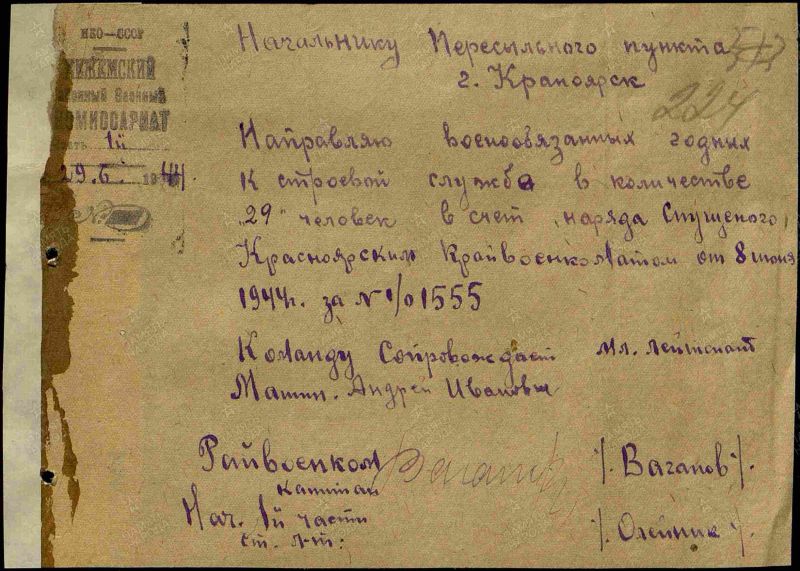 НКО—СССР
ИЖЕМСКИЙ
ВОЕННЫЙ
КОМИССАРИАТ
1й
29.6. 1944.
№
Начальнику Пересыльного пункта
г. Краноярск
224
Направляю военообязанных годных
к строевой службе в количестве
„29" человек в счет наряда Спущеного,
Красноярским Крайвоенкоматом от 8 июня
1944г. за №1/01555
Команду Сопровождает Мл. лейтенант
Машин. Андрей Иванович
Райвоенком Ваганов /. Ваганов /.
капитан
Нач. 1й части /. Олейник /.
ст. л-т: